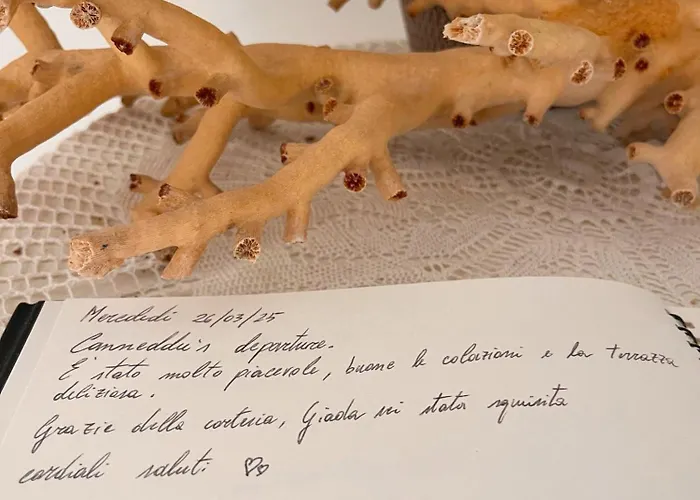 Mercoledì 26/03/25
Canneddu's departure.
È stato molto piacevole, buone le colazioni e la terrazza
deliziosa.
Grazie della cortesia, Giada sei stata squisita
cordiali saluti ♡♡